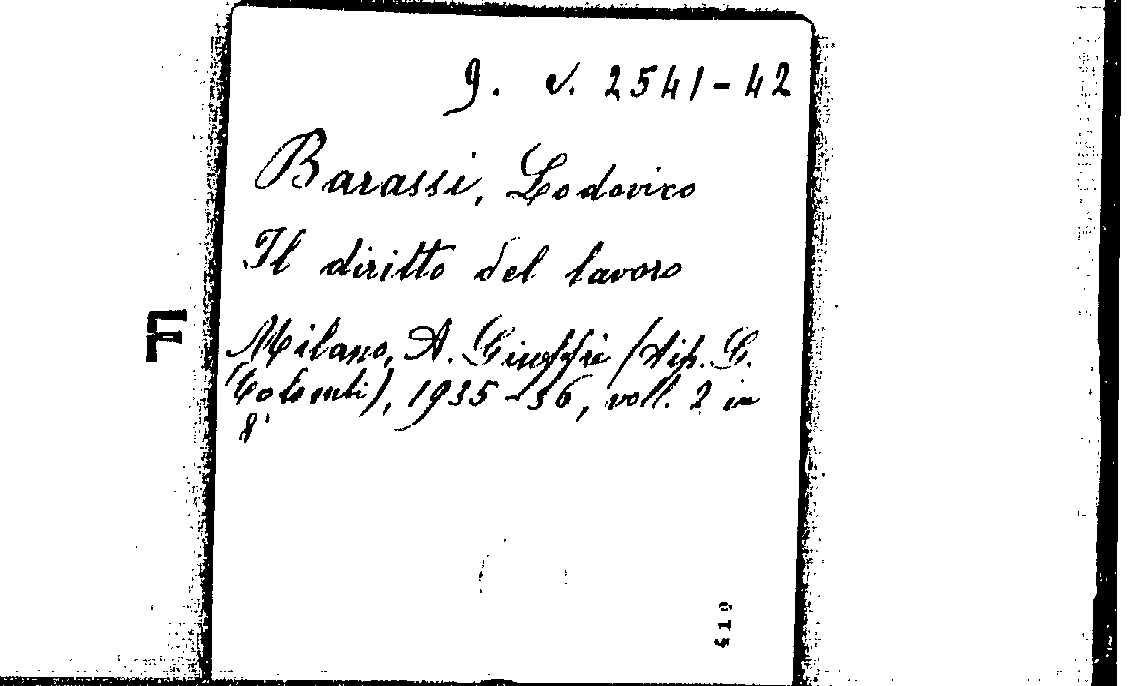 9. v. 2541-42
Barassi, Lodovico
Il diritto del lavoro
Milano, A. Giuffrè (tip. G.
Colombi), 1935-36, voll. 2 in
8°
410